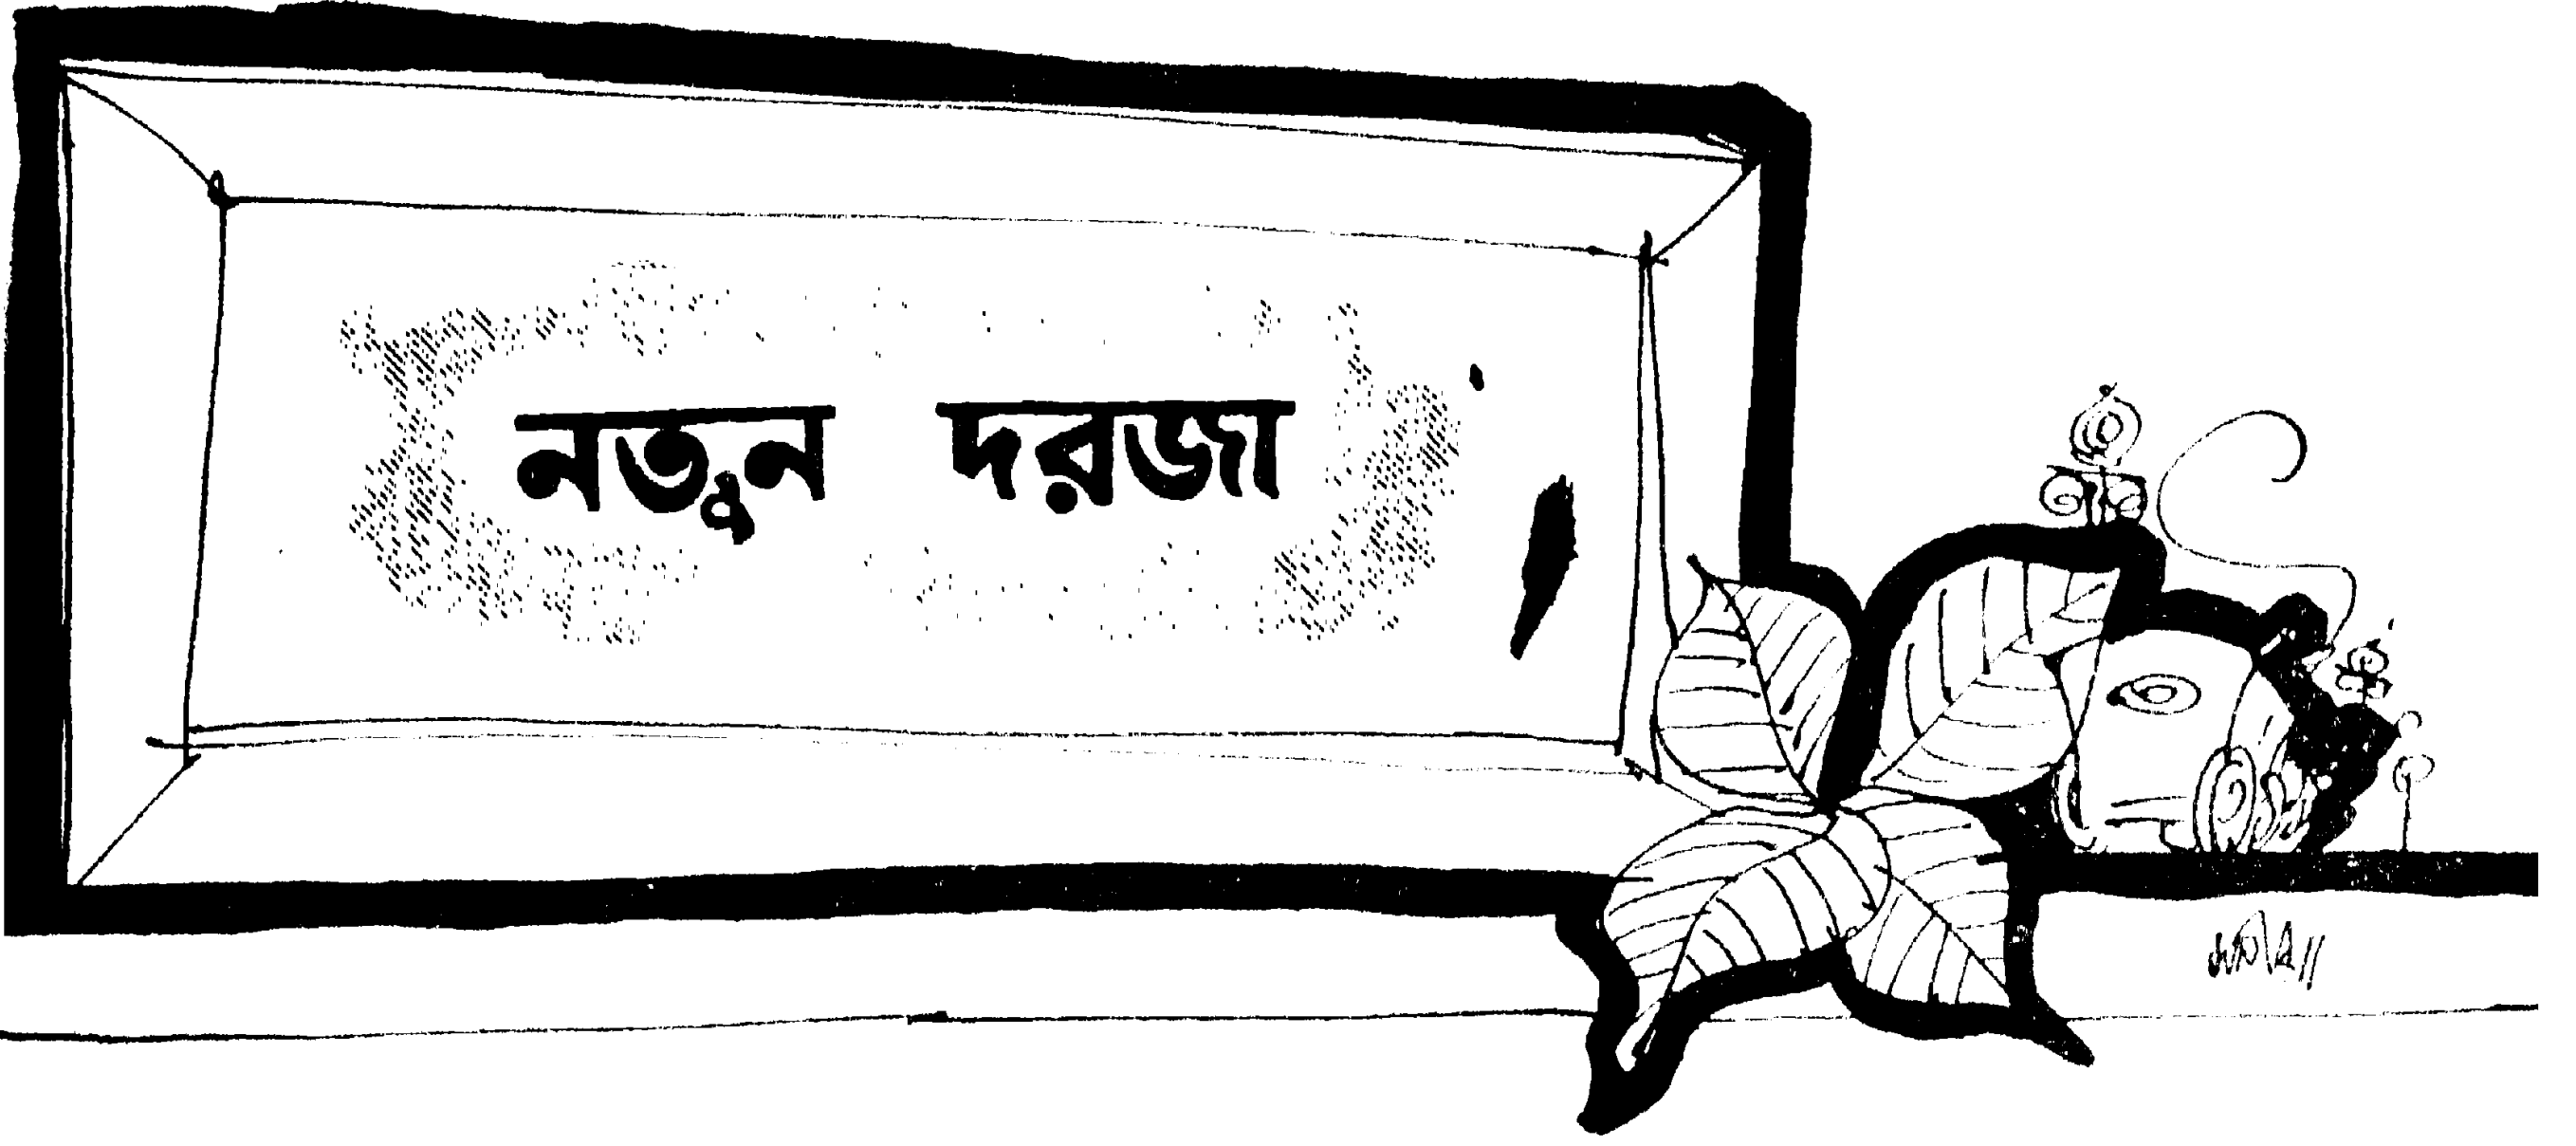 নতুন দরজা